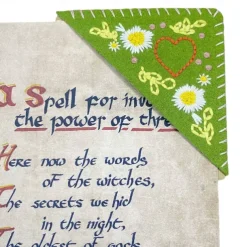 a Spell for
the power of
Here now the words
of the witches,
The secrets we hid
in the night,
The oldest of gods